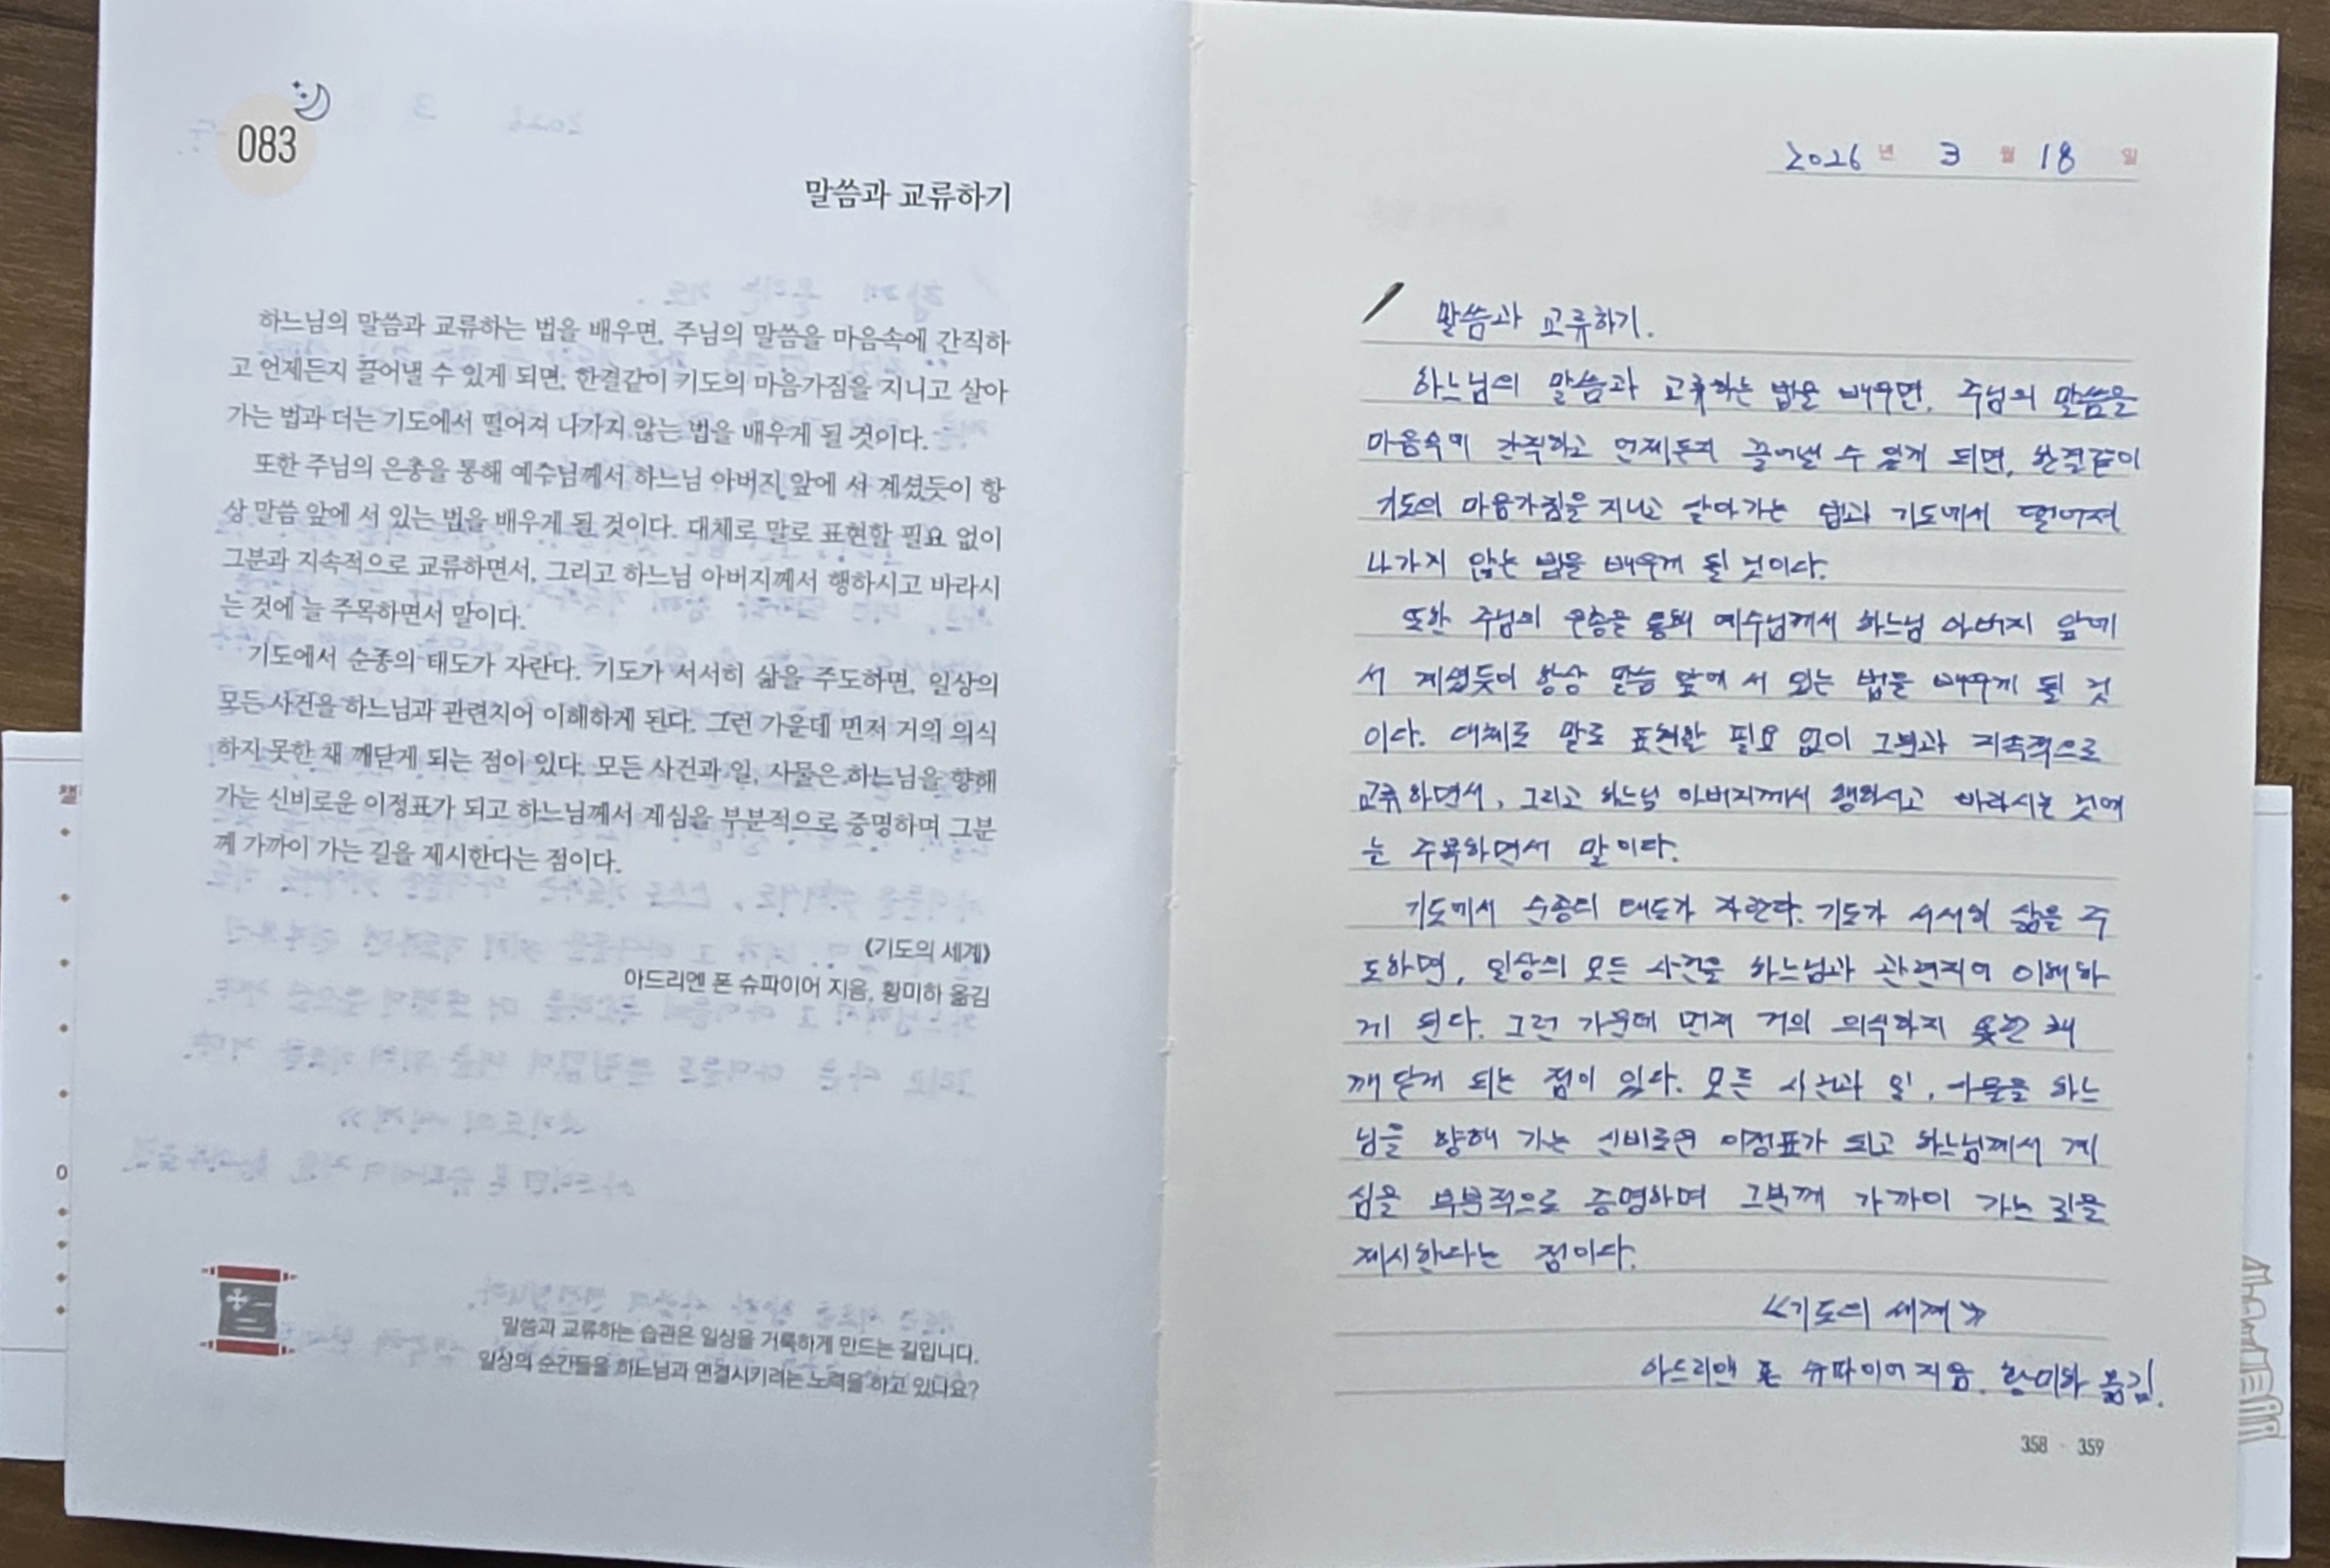 083
말씀과 교류하기
하느님의 말씀과 교류하는 법을 배우면, 주님의 말씀을 마음속에 간직하
고 언제든지 끌어낼 수 있게 되면, 한결같이 기도의 마음가짐을 지니고 살아
가는 법과 더는 기도에서 떨어져 나가지 않는 법을 배우게 될 것이다.
또한 주님의 은총을 통해 예수님께서 하느님 아버지 앞에 서 계셨듯이 항
상 말씀 앞에 서 있는 법을 배우게 될 것이다. 대체로 말로 표현할 필요 없이
그분과 지속적으로 교류하면서, 그리고 하느님 아버지께서 행하시고 바라시
는 것에 늘 주목하면서 말이다.
기도에서 순종의 태도가 자란다. 기도가 서서히 삶을 주도하면, 일상의
모든 사건을 하느님과 관련지어 이해하게 된다. 그런 가운데 먼저 거의 의식
하지 못한 채 깨닫게 되는 점이 있다. 모든 사건과 일, 사물은 하느님을 향해
가는 신비로운 이정표가 되고 하느님께서 계심을 부분적으로 증명하며 그분
께 가까이 가는 길을 제시한다는 점이다.
《기도의 세계》
아드리엔 폰 슈파이어 지음, 황미하 옮김
말씀과 교류하는 습관은 일상을 거룩하게 만드는 길입니다.
일상의 순간들을 하느님과 연결시키려는 노력을 하고 있나요?
2026 년 3 월 18 일
말씀과 교류하기.
하느님의 말씀과 교류하는 법을 배우면, 주님의 말씀을
마음속에 간직하고 언제든지 끌어낼 수 있게 되면, 한결같이
기도의 마음가짐을 지니고 살아가는 법과 기도에서 떨어져
나가지 않는 법을 배우게 될 것이다.
또한 주님의 은총을 통해 예수님께서 하느님 아버지 앞에
서 계셨듯이 항상 말씀 앞에 서 있는 법을 배우게 될 것
이다. 대체로 말로 표현할 필요 없이 그분과 지속적으로
교류하면서, 그리고 하느님 아버지께서 행하시고 바라시는 것에
는 주목하면서 말이다.
기도에서 순종의 태도가 자란다. 기도가 서서히 삶을 주
도하면, 일상의 모든 사건을 하느님과 관련지어 이해하
게 된다. 그런 가운데 먼저 거의 의식하지 못한 채
깨닫게 되는 점이 있다. 모든 사건과 일, 사물을 하느
님을 향해 가는 신비로운 이정표가 되고 하느님께서 계
심을 부분적으로 증명하며 그분께 가까이 가는 길을
제시한다는 점이다.
《기도의 세계》
아드리엔 폰 슈파이어 지음, 황미하 옮김.
358 · 359